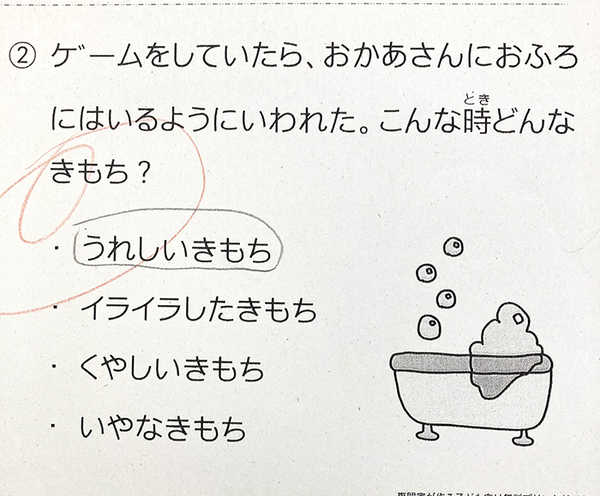 ② ゲームをしていたら、おかあさんにおふろ
とき
にはいるようにいわれた。こんな時どんな
きもち？
・うれしいきもち
・イライラしたきもち
・くやしいきもち
・いやなきもち